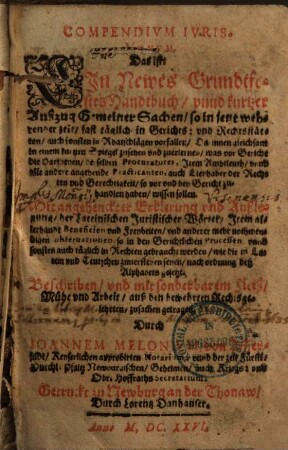 COMPENDIVM IVRIS.
Das ist:
Ein Newes Grundtfe-
stes Handtbuch / vnnd kurtzer
Außzug Gemeiner Sachen / so in jetz weh-
render zeit / fast täglich in Gerichts: vnd Rechtstäte-
ten / auch sonsten in Rhatschlägen vorfallen / Da innen gleichsam
in einem klaren Spiegl zusehen vnd zuerlernen / was vor Gericht
die Partheyen / Procuratores, Item Ambtleuth /
alle andere angehende Practicanten, auch Liebhaber der Rech-
ten vnd Gerechtigkeit / so vor vnd bey Gericht zu-
handlen haben / wissen sollen.
Mit angehenckter Erklerung vnd Außle-
gung / der Lateinischen Juristischer Wörter / Item al-
lerhand Beneficien vnd Freyheiten / vnd anderer mehr nothwen-
digen so in den Gerichtlichen Processen vnnd
sonsten auch täglich in Rechten gebraucht werden / wie die in La-
tein vnd Teutschen zuuerstehen seyen / nach ordnung deß
Alphabets gesetzt.
Beschriben / vnd mit sonderbarem fleiß /
Mühe vnd Arbeit / auß den bewehrten Rechtsge-
lehrten / zusamen getragen
Durch
IOANNEM MELON
Keyserlichen approbirten Notari vnnd der zeit Fürstl:
Durchl: Pfaltz Newburgischen / Geheimen / auch Kriegs: vnd
Obr: Hoffraths Secretarium.
Getruckt zu Newburg an der Thonaw /
Durch Lorentz Danhauser.
Anno M, DC. XXVI.